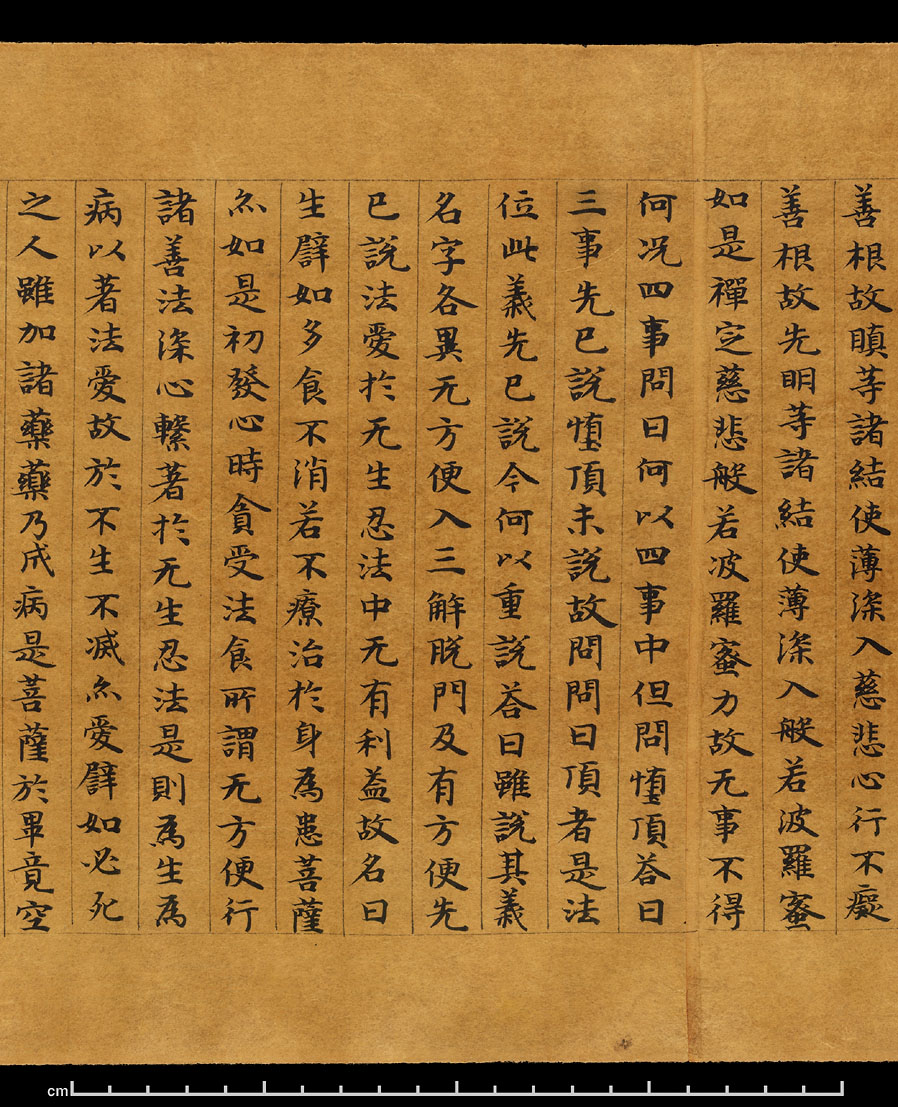 善根故瞋䓁諸結使薄深入慈悲心行不癡
善根故先明䓁諸結使薄深入般若波羅蜜
如是禪㝎慈悲般若波羅蜜力故无事不得
何况四事問曰何以四事中但問墮頂荅曰
三事先已說墮頂未說故問問曰頂者是法
位此義先已說今何以重說荅曰雖說其義
名字各異无方便入三解脱門及有方便先
已說法愛於无生忍法中无有利益故名曰
生譬如多食不消若不療治於身為患菩薩
亦如是初發心時貪受法食所謂无方便行
諸善法深心繫著於无生忍法是則為生為
病以著法愛故於不生不滅亦愛譬如必死
之人雖加諸藥藥乃成病是菩薩於畢竟空
cm